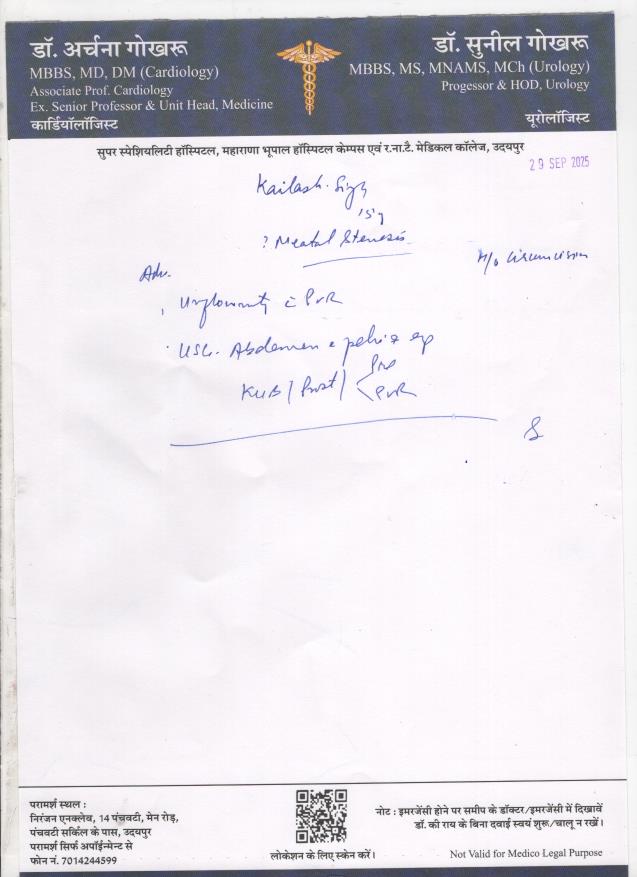 डॉ. अर्चना गोखरू
MBBS, MD, DM (Cardiology)
Associate Prof. Cardiology
Ex. Senior Professor & Unit Head, Medicine
कार्डियॉलॉजिस्ट
डॉ. सुनील गोखरू
MBBS, MS, MNAMS, MCh (Urology)
Progessor & HOD, Urology
यूरोलॉजिस्ट
सुपर स्पेशियलिटी हॉस्पिटल, महाराणा भूपाल हॉस्पिटल केम्पस एवं र.ना.टै. मेडिकल कॉलेज, उदयपुर
29 SEP 2025
Kailash. Singh
? Meatal Stenosis
H/o Circumcision
Adv.
Uroflowmetry c PVR
USG. Abdomen & pelvis
KUB / Prost / Pre
PVR
परामर्श स्थल :
निरंजन एनक्लेव, 14 पंचवटी, मेन रोड़,
पंचवटी सर्किल के पास, उदयपुर
परामर्श सिर्फ अपॉईन्मेण्ट से
फोन नं. 7014244599
लोकेशन के लिए स्केन करें।
नोट : इमरजेंसी होने पर समीप के डॉक्टर/इमरजेंसी में दिखावें
डॉ. की राय के बिना दवाई स्वयं शुरू/चालू न रखें।
Not Valid for Medico Legal Purpose